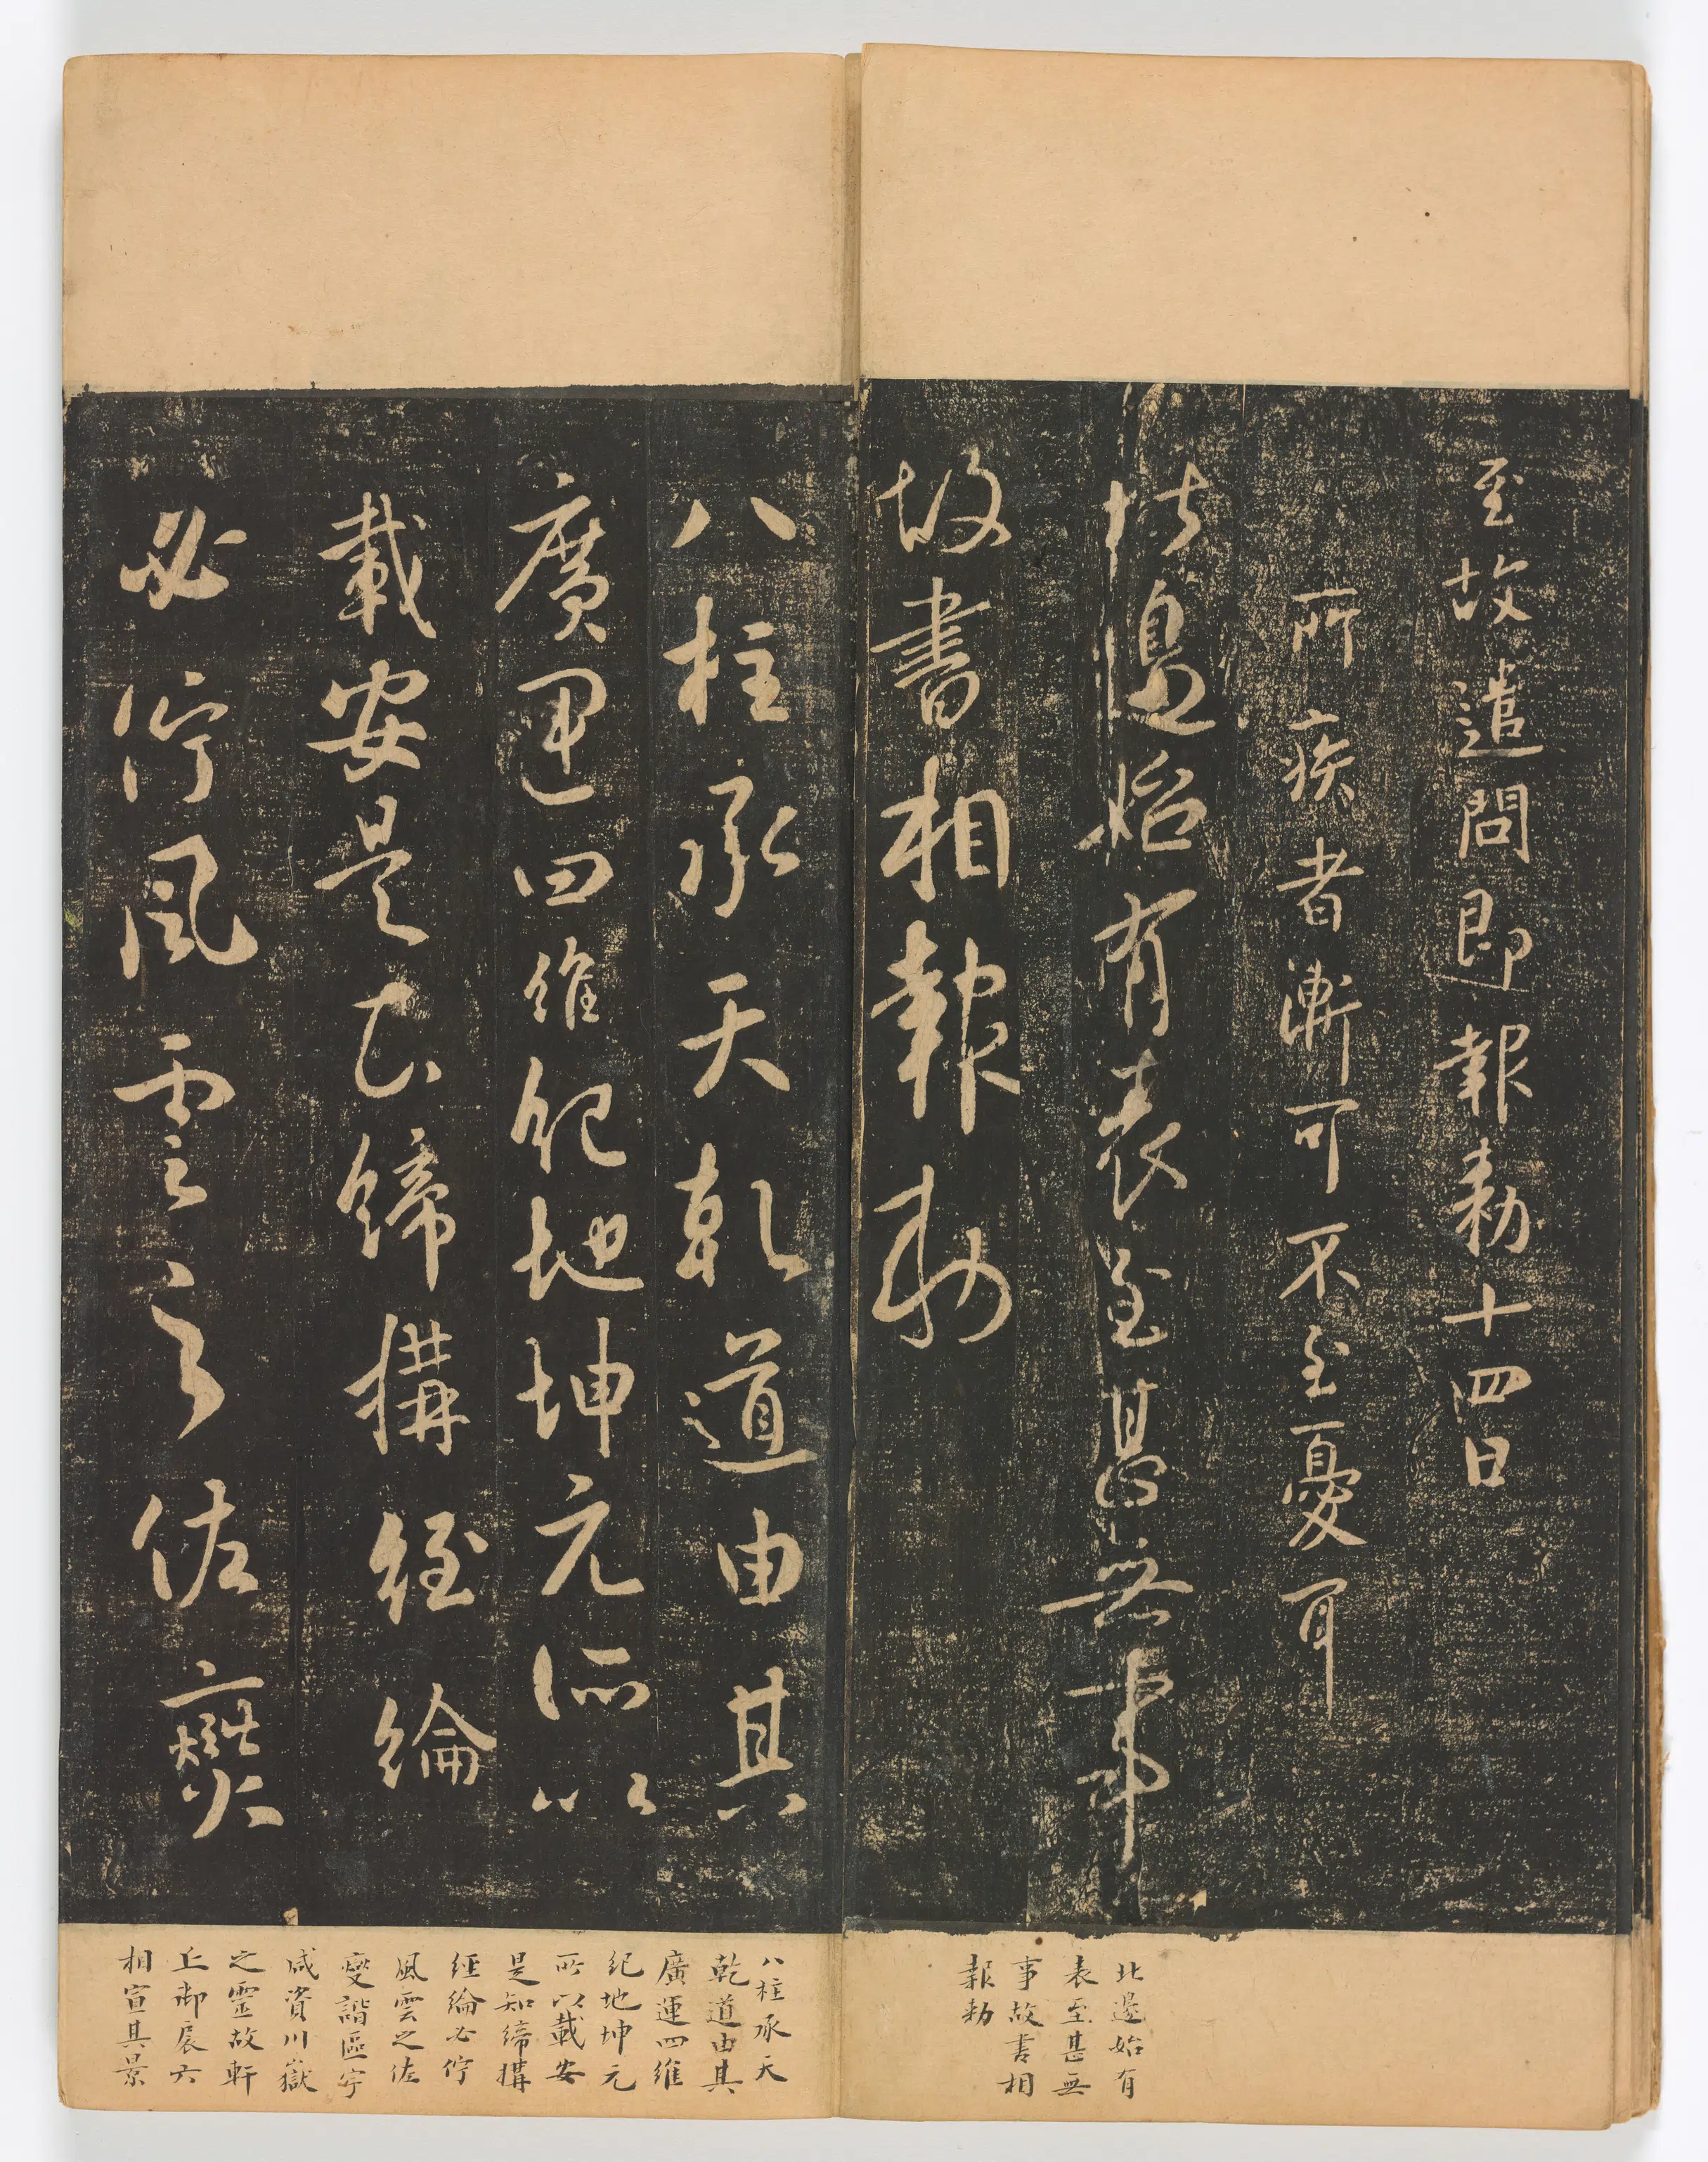 至故遣問即報敕十四日
所疾者漸可不至憂耳
北邊始有表至甚無事
故書相報敕
八柱承天乾道由其
廣運四維紀地坤元所以
載安是知締構經綸
必佇風雲之佐燮
北邊始有
表至甚無
事故書相
報勑
八柱承天
乾道由其
廣運四維
紀地坤元
所以載安
是知締構
經綸必佇
風雲之佐
變諧區宇
咸資川嶽
之靈故軒
丘御扆六
相宣其景